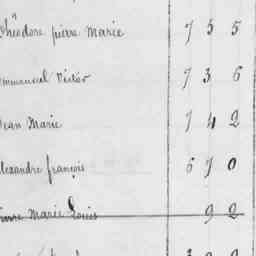 Théodore pierre Marie 7 5 5
Emmanuel Victor 7 3 6
Jean Marie 7 4 2
Alexandre françois 6 7 0
Pierre Marie Louis 9 2